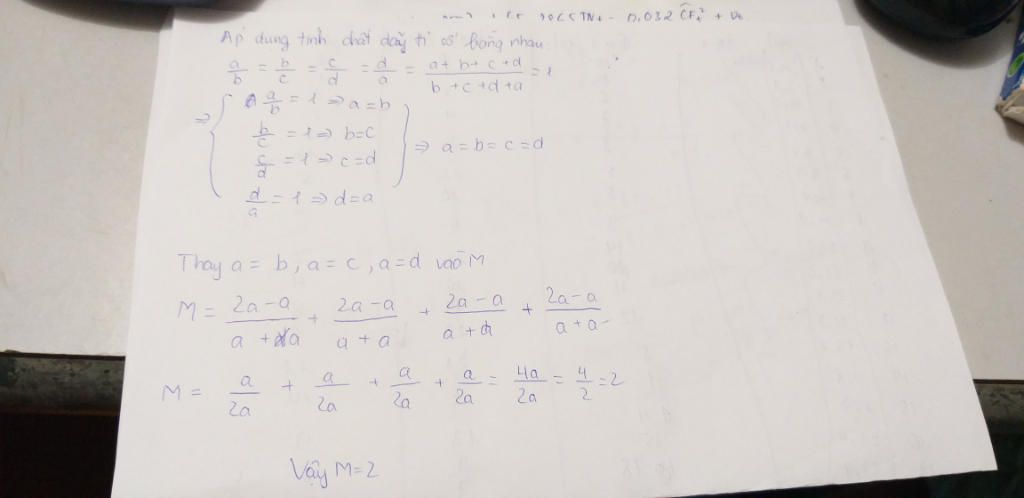 Áp dụng tính chất dãy tỉ số bằng nhau
a/b = b/c = c/d = d/a = (a+b+c+d)/(b+c+d+a) = 1
⇒ { a/b = 1 ⇒ a=b
b/c = 1 ⇒ b=c
c/d = 1 ⇒ c=d } ⇒ a=b=c=d
d/a = 1 ⇒ d=a
Thay a = b, a = c, a = d vào M
M = (2a-a)/(a+a) + (2a-a)/(a+a) + (2a-a)/(a+a) + (2a-a)/(a+a)
M = a/2a + a/2a + a/2a + a/2a = 4a/2a = 4/2 = 2
Vậy M=2